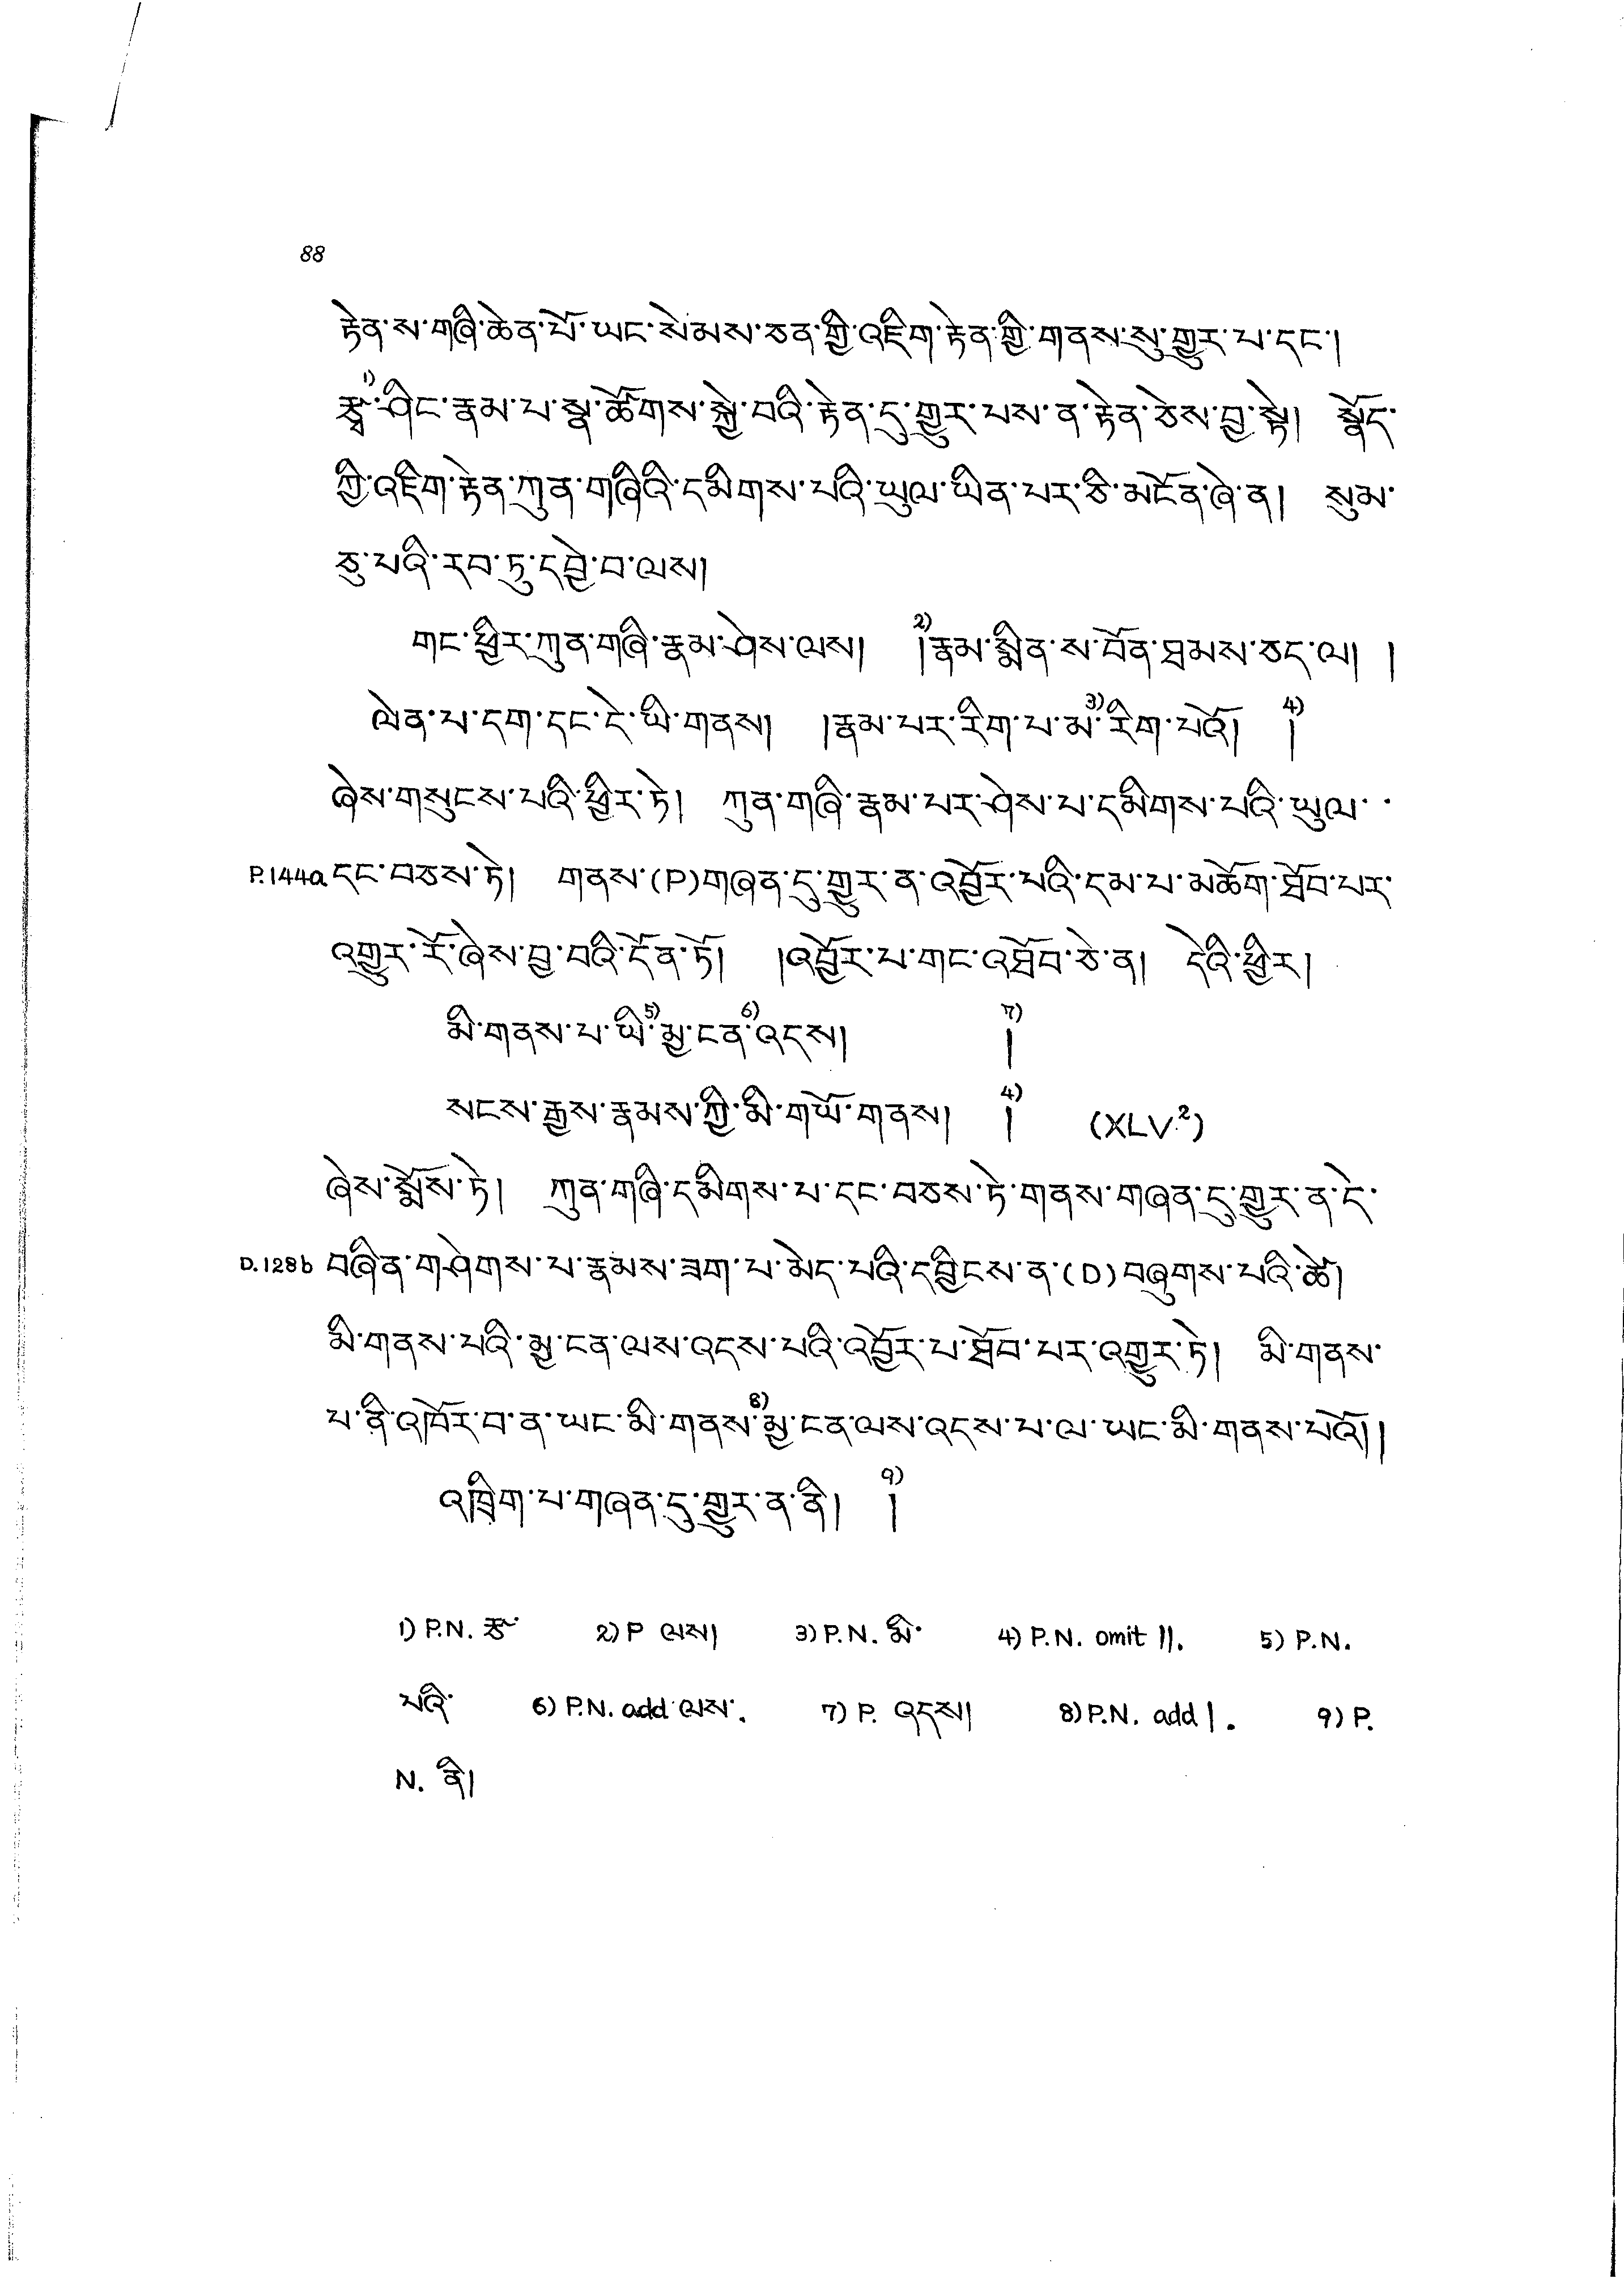 88
རྟེན་ས་གཞི་ཆེན་པོ་ཡང་སེམས་ཅན་གྱི་འཇིག་རྟེན་གྱི་གནས་སུ་གྱུར་པ་དང་།
རྩྭ་1)ཤིང་རྣམ་པ་སྣ་ཚོགས་སྐྱེ་བའི་རྟེན་དུ་གྱུར་པས་ན་རྟེན་ཅེས་བྱ་སྟེ། སྣོད་
ཀྱི་འཇིག་རྟེན་ཀུན་གཞིའི་དམིགས་པའི་ཡུལ་ཡིན་པར་ཅི་མངོན་ཞེ་ན། སུམ་
ཅུ་པའི་རབ་ཏུ་དབྱེ་བ་ལས།
གང་ཕྱིར་ཀུན་གཞི་རྣམ་ཤེས་ལས། 2)།རྣམ་སྨིན་ས་བོན་ཐམས་ཅད་ལ། །
ལེན་པ་དག་དང་དེ་ཡི་གནས། །རྣམ་པར་རིག་པ་མ་3)རིག་པའོ། །4)
ཞེས་གསུངས་པའི་ཕྱིར་ཏེ། ཀུན་གཞི་རྣམ་པར་ཤེས་པ་དམིགས་པའི་ཡུལ་་
P.144a དང་བཅས་ཏེ། གནས་(P)གཞན་དུ་གྱུར་ན་འབྱོར་པའི་དམ་པ་མཆོག་ཐོབ་པར་
འགྱུར་རོ་ཞེས་བྱ་བའི་དོན་ཏོ། །འབྱོར་པ་གང་འཐོབ་ཅེ་ན། དེའི་ཕྱིར།
མི་གནས་པ་ཡི་5)མྱ་ངན་6)འདས། །7)
སངས་རྒྱས་རྣམས་ཀྱི་མི་གཡོ་གནས། །4) (XLV.2)
ཞེས་སྨོས་ཏེ། ཀུན་གཞི་དམིགས་པ་དང་བཅས་ཏེ་གནས་གཞན་དུ་གྱུར་ན་དེ་
D.128b བཞིན་གཤེགས་པ་རྣམས་ཟག་པ་མེད་པའི་དབྱིངས་ན་(D)བཞུགས་པའི་ཚེ།
མི་གནས་པའི་མྱ་ངན་ལས་འདས་པའི་འབྱོར་པ་ཐོབ་པར་འགྱུར་ཏེ། མི་གནས་
པ་ནི་འཁོར་བ་ན་ཡང་མི་གནས་8)མྱ་ངན་ལས་འདས་པ་ལ་ཡང་མི་གནས་པའོ།།
འཁྲིག་པ་གཞན་དུ་གྱུར་ན་ནི། །9)
1) P.N. རྩ་ 2) P ལས། 3) P.N. མི་ 4) P.N. omit །།. 5) P.N.
པའི་ 6) P.N. add ལས་. 7) P. འདས། 8) P.N. add །. 9) P.
N. ནི།